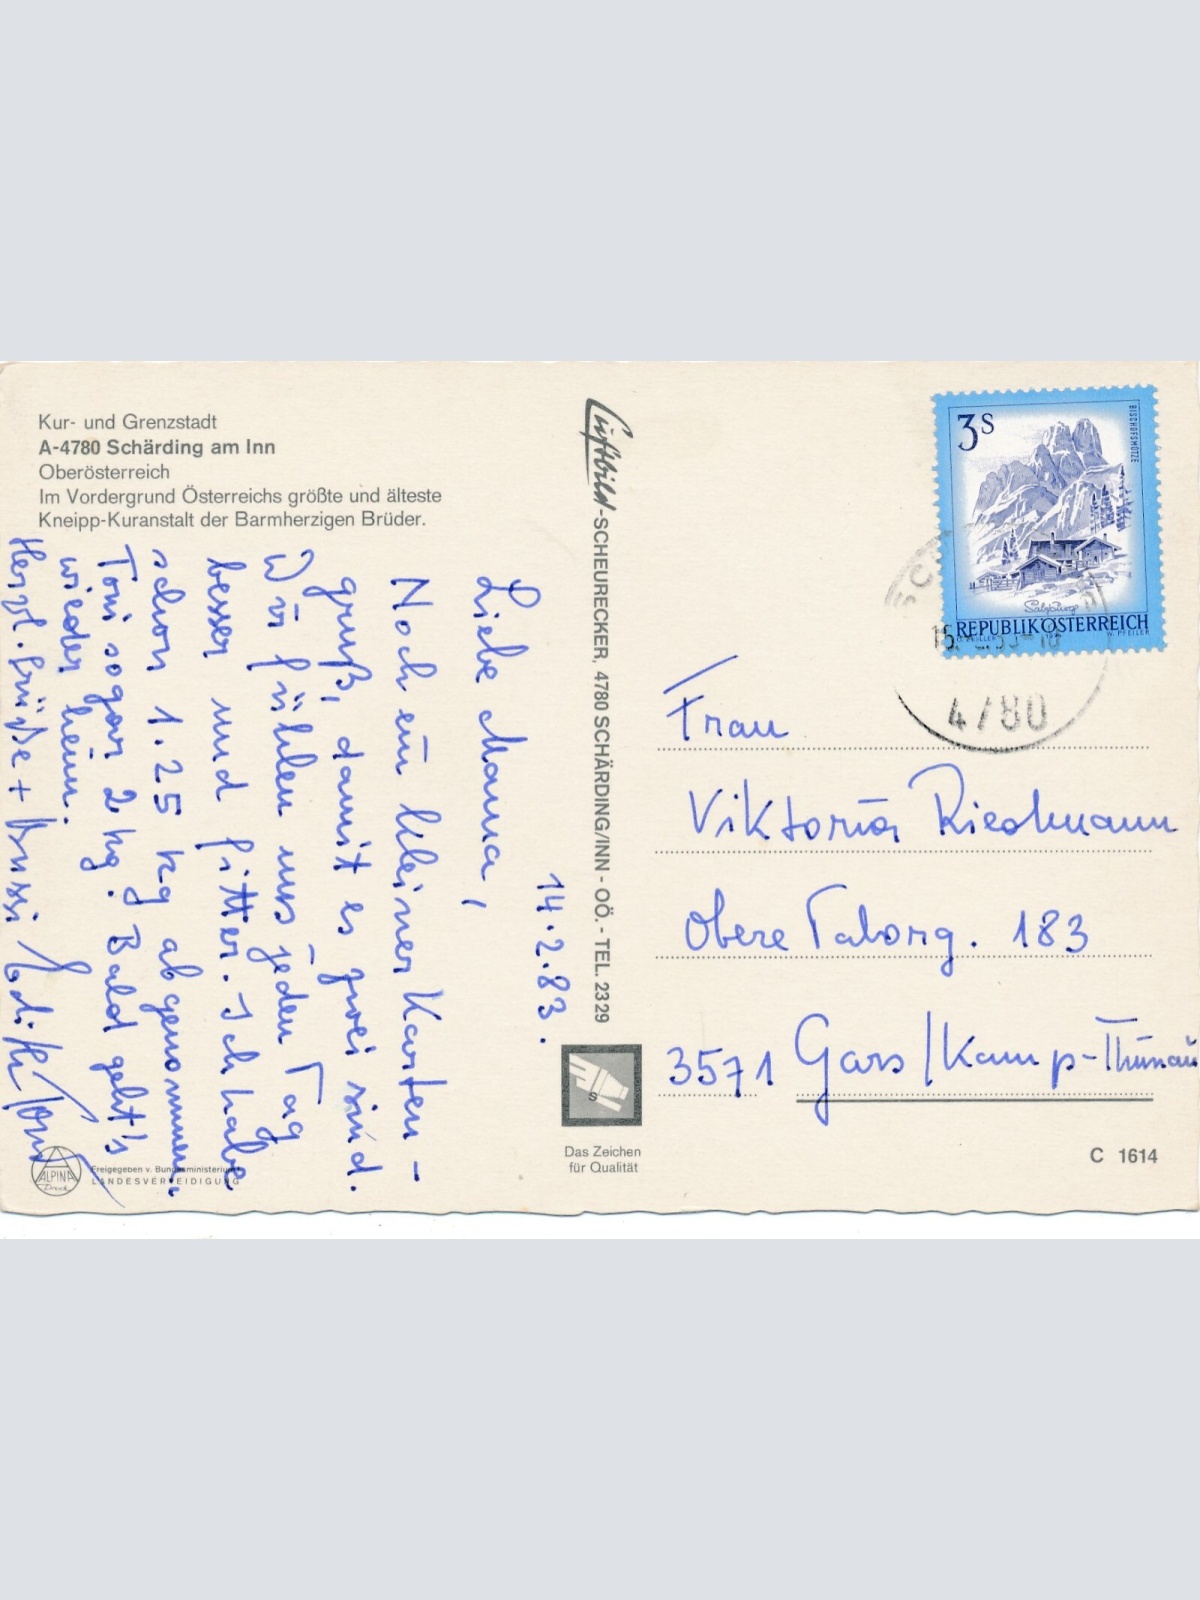 Kur- und Grenzstadt
A-4780 Schärding am Inn
Oberösterreich
Im Vordergrund Österreichs größte und älteste
Kneipp-Kuranstalt der Barmherzigen Brüder.
14.2.83.
Liebe Mama,
Noch ein kleiner Karten-
gruß, damit es zwei sind.
Wir fühlen uns jeden Tag
besser und fitter. Ich habe
schon 1.25 kg abgenommen,
Toni sogar 2 kg. Bald geht's
wieder heim.
Herzl. Grüße + Bussi Edith Toni
ALPINA
Druck
Freigegeben v. Bundesministerium f.
LANDESVERTEIDIGUNG
Luftbild-SCHEURECKER, 4780 SCHÄRDING/INN - OÖ. - TEL. 2329
S
Das Zeichen
für Qualität
3S
BISCHOFSMÜTZE
Salzburg
REPUBLIK ÖSTERREICH
W. PFEILER
4780
Frau
Viktoria Riedmann
Obere Taborg. 183
3571 Gars/Kamp-Thunau
C 1614